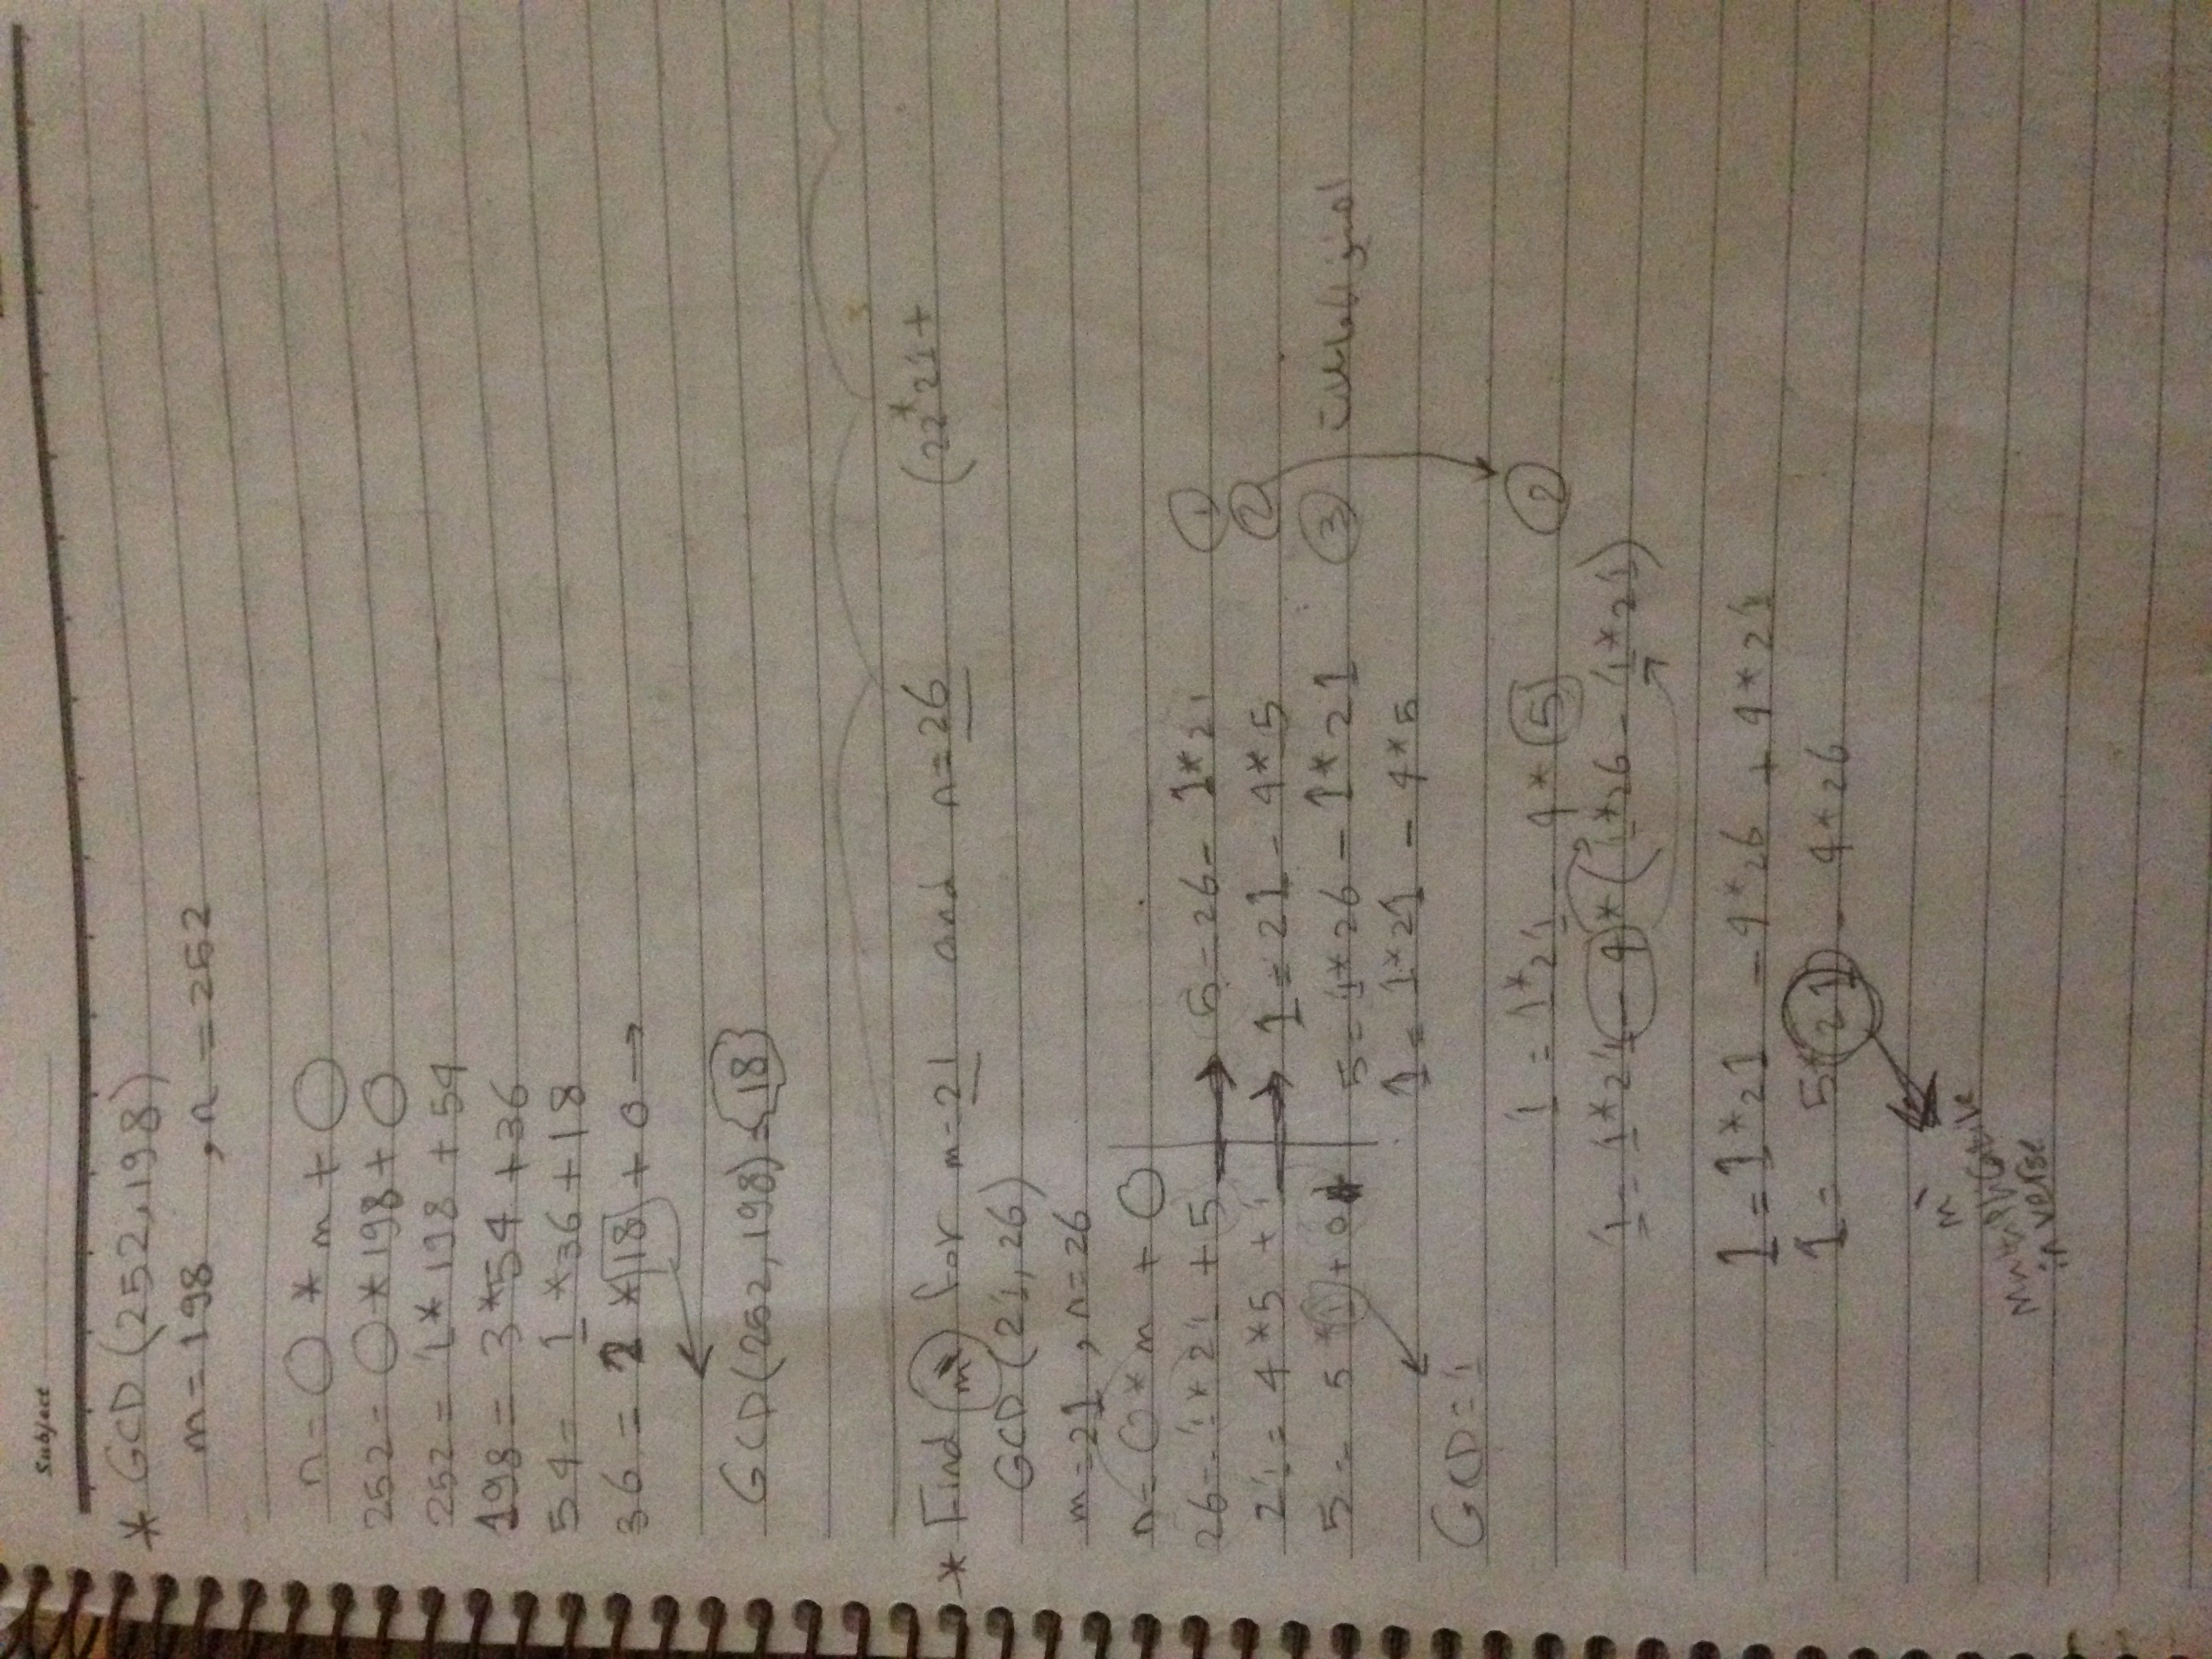 Subject
* GCD (252,198)
m = 198 , n = 252
n = ○ * m + ○
252 = ○ * 198 + ○
252 = 1 * 198 + 54
198 = 3 * 54 + 36
54 = 1 * 36 + 18
36 = 2 * 18 + 0 →
GCD(252,198) = 18
* Find m` for m=21 and n=26 (22*21+
GCD (21,26)
m=21 , n=26
n= ○ * m + ○
26= 1*21 + 5 → 5=26- 1*21 ①
21= 4*5 + 1 → 1=21- 4*5 ②
5= 5*1+0 5=1*26 - 1*21 ③
1 = 1*21 - 4*5
GCD=1
1 = 1*21 - 4*5 ②
1= 1*21 - 4*(1*26 - 1*21)
1=1*21 -4*26 + 4*21
1= 5*21 - 4*26
m`
Multiplicative
inverse